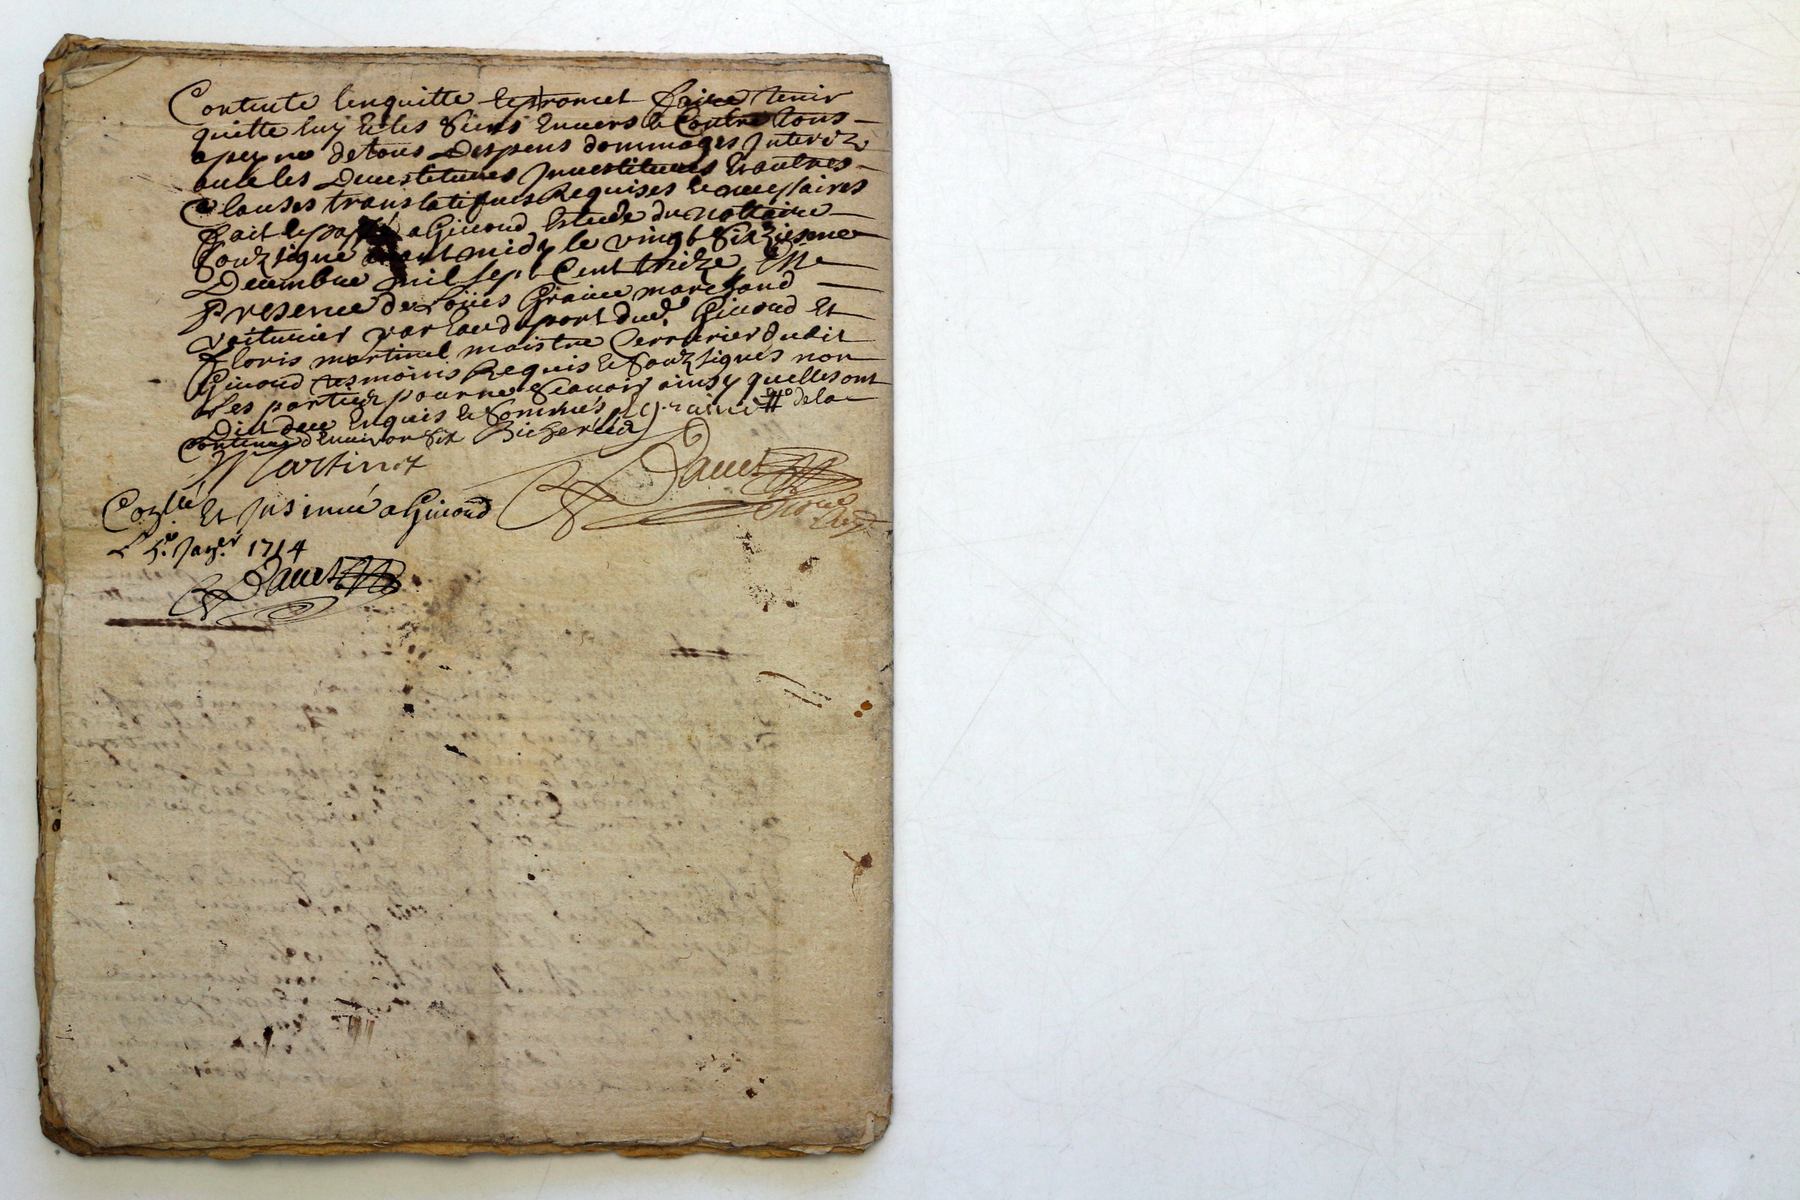 Contente lenquitte et promet faire tenir
quitte luy et les siens envers et contre tous
a peyne de tous despens dommages interetz
avec les devestitures investitures et autres
clauses translatifves requises et necessaires
fait et passé a Givord estude du nottaire
souzsigné avant midy le vingt sixiesme
decembre mil sept cent treize en
presence de Loüis Graine marchand
voiturier par eau du port dud. Givord et
Floris martinet maistre serrurier dudit
Givord tesmoins requis et souzsignés non
les parties pour ne scavoir ainsy quelles ont
dit de ce enquis et sommés de la
contenue d'environ six bicherées
Martinet
Davet
Con.llé et insinué a Givord
le 5.e Jan.er 1714
Davet